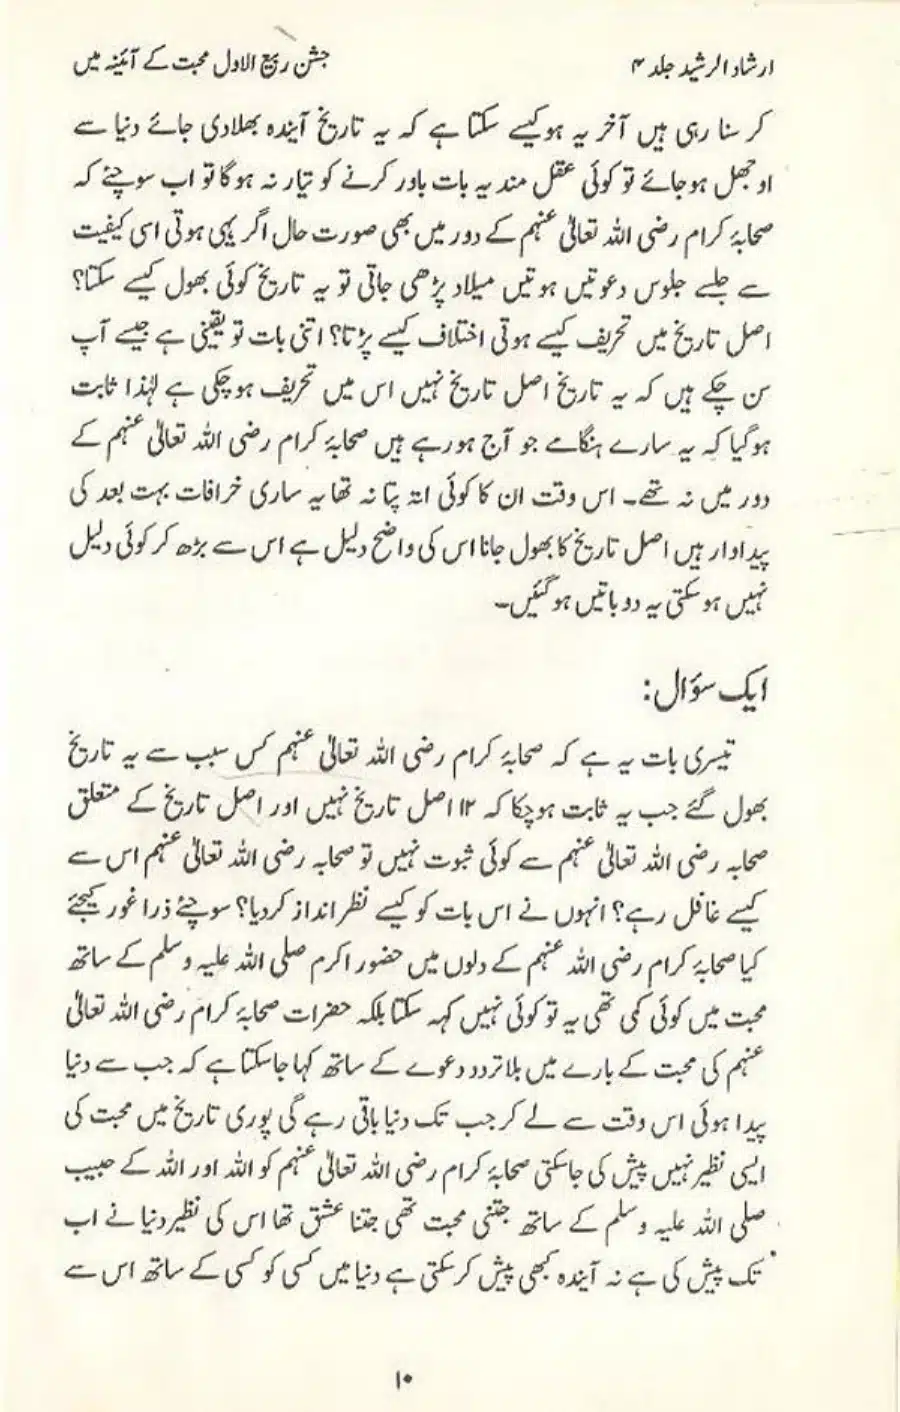 ارشاد الرشید جلد ۴
جشن ربیع الاول محبت کے آئینہ میں
کر سنا رہی ہیں آخر یہ ہو کیسے سکتا ہے کہ یہ تاریخ آیندہ بھلادی جائے دنیا سے
اوجھل ہو جائے تو کوئی عقل مند یہ بات باور کرنے کو تیار نہ ہوگا تو اب سوچئے کہ
صحابۂ کرام رضی اللہ تعالیٰ عنہم کے دور میں بھی صورت حال اگر یہی ہوتی اسی کیفیت
سے جلسے جلوس دعوتیں ہوتیں میلاد پڑھی جاتی تو یہ تاریخ کوئی بھول کیسے سکتا؟
اصل تاریخ میں تحریف کیسے ہوتی اختلاف کیسے پڑتا؟ اتنی بات تو یقینی ہے جیسے آپ
سن چکے ہیں کہ یہ تاریخ اصل تاریخ نہیں اس میں تحریف ہو چکی ہے لہٰذا ثابت
ہوگیا کہ یہ سارے ہنگامے جو آج ہو رہے ہیں صحابۂ کرام رضی اللہ تعالیٰ عنہم کے
دور میں نہ تھے۔ اس وقت ان کا کوئی اتہ پتا نہ تھا یہ ساری خرافات بہت بعد کی
پیداوار ہیں اصل تاریخ کا بھول جانا اس کی واضح دلیل ہے اس سے بڑھ کر کوئی دلیل
نہیں ہوسکتی یہ دو باتیں ہو گئیں۔
ایک سؤال:
تیسری بات یہ ہے کہ صحابۂ کرام رضی اللہ تعالیٰ عنہم کس سبب سے یہ تاریخ
بھول گئے جب یہ ثابت ہو چکا کہ ۱۲ اصل تاریخ نہیں اور اصل تاریخ کے متعلق
صحابہ رضی اللہ تعالیٰ عنہم سے کوئی ثبوت نہیں تو صحابہ رضی اللہ تعالیٰ عنہم اس سے
کیسے غافل رہے؟ انہوں نے اس بات کو کیسے نظر انداز کردیا؟ سوچئے ذرا غور کیجئے
کیا صحابۂ کرام رضی اللہ عنہم کے دلوں میں حضور اکرم صلی اللہ علیہ وسلم کے ساتھ
محبت میں کوئی کمی تھی یہ تو کوئی نہیں کہہ سکتا بلکہ حضرات صحابۂ کرام رضی اللہ تعالیٰ
عنہم کی محبت کے بارے میں بلاتردد دعوے کے ساتھ کہا جاسکتا ہے کہ جب سے دنیا
پیدا ہوئی اس وقت سے لے کر جب تک دنیا باقی رہے گی پوری تاریخ میں محبت کی
ایسی نظیر نہیں پیش کی جاسکتی صحابۂ کرام رضی اللہ تعالیٰ عنہم کو اللہ اور اللہ کے حبیب
صلی اللہ علیہ وسلم کے ساتھ جتنی محبت تھی جتنا عشق تھا اس کی نظیر دنیا نے اب
تک پیش کی ہے نہ آیندہ کبھی پیش کرسکتی ہے دنیا میں کسی کو کسی کے ساتھ اس سے
۱۰